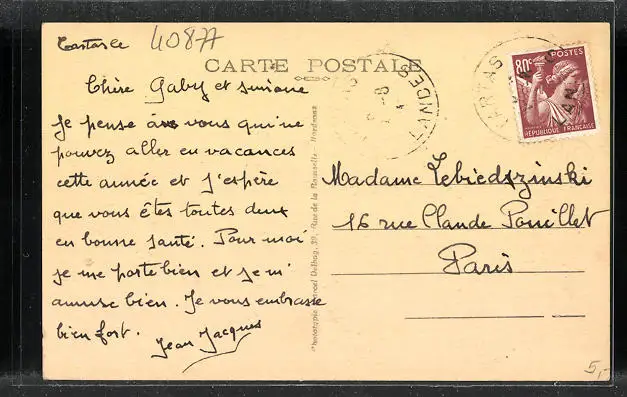 Tartas le
40877
CARTE POSTALE
Chère Gaby et Simone
Je pense à vous qui ne
pouvez aller en vacances
cette année et j'espère
que vous êtes toutes deux
en bonne santé. Pour moi
je me porte bien et je m'
amuse bien. Je vous embrasse
bien fort.
Jean Jacques
Phototypie Marcel Delboy, 39, Rue de la Rousselle - Bordeaux
LANDES
TARTAS
80c
POSTES
REPUBLIQUE FRANÇAISE
Madame Lebiedszinski
16 rue Claude Pouillet
Paris
5,-